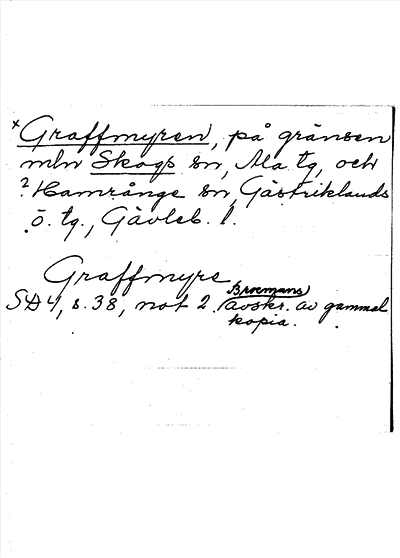 ×Graffmyren, på gränsen
mln Skogs sn, Ala tg, och
? Hamrånge sn, Gästriklands
ö. tg., Gävleb. l.
Graffmyre
Broemans
SD 4, s. 38, not 2. (avskr. av gammal
kopia.